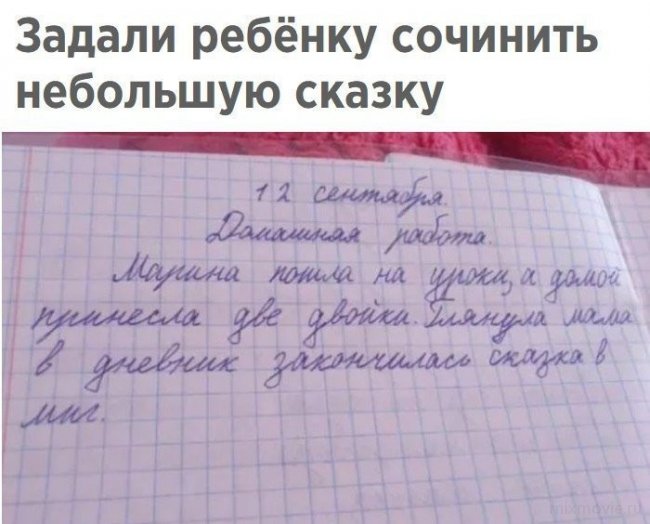 Задали ребёнку сочинить
небольшую сказку
12 сентября.
Домашная работа.
Марина пошла на уроки, а домой
принесла две двойки. Глянула мама
в дневник закончилась сказка в
миг.
mixmovie.ru